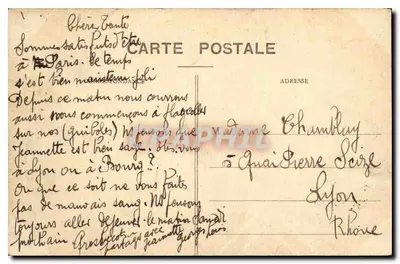 Chère Tante
Sommes satisfaits d'être
à Paris. le temps
s'est bien maintenu joli
Depuis ce matin nous courrons
aussi nous commençons à flageoler
sur nos (guiboles) que
Jeannette est bien sage.
à Lyon ou à Bourg?
Ou que ce soit ne vous faites
pas de mauvais sang. N/ pensons
toujours aller déjeuner le matin samedi
prochain Gros
partager avec Jeannette
Georges Louis
CARTE POSTALE
ADRESSE
Madame Chamblay
5 Quai Pierre Scize
Lyon
Rhône
CPHPHIL